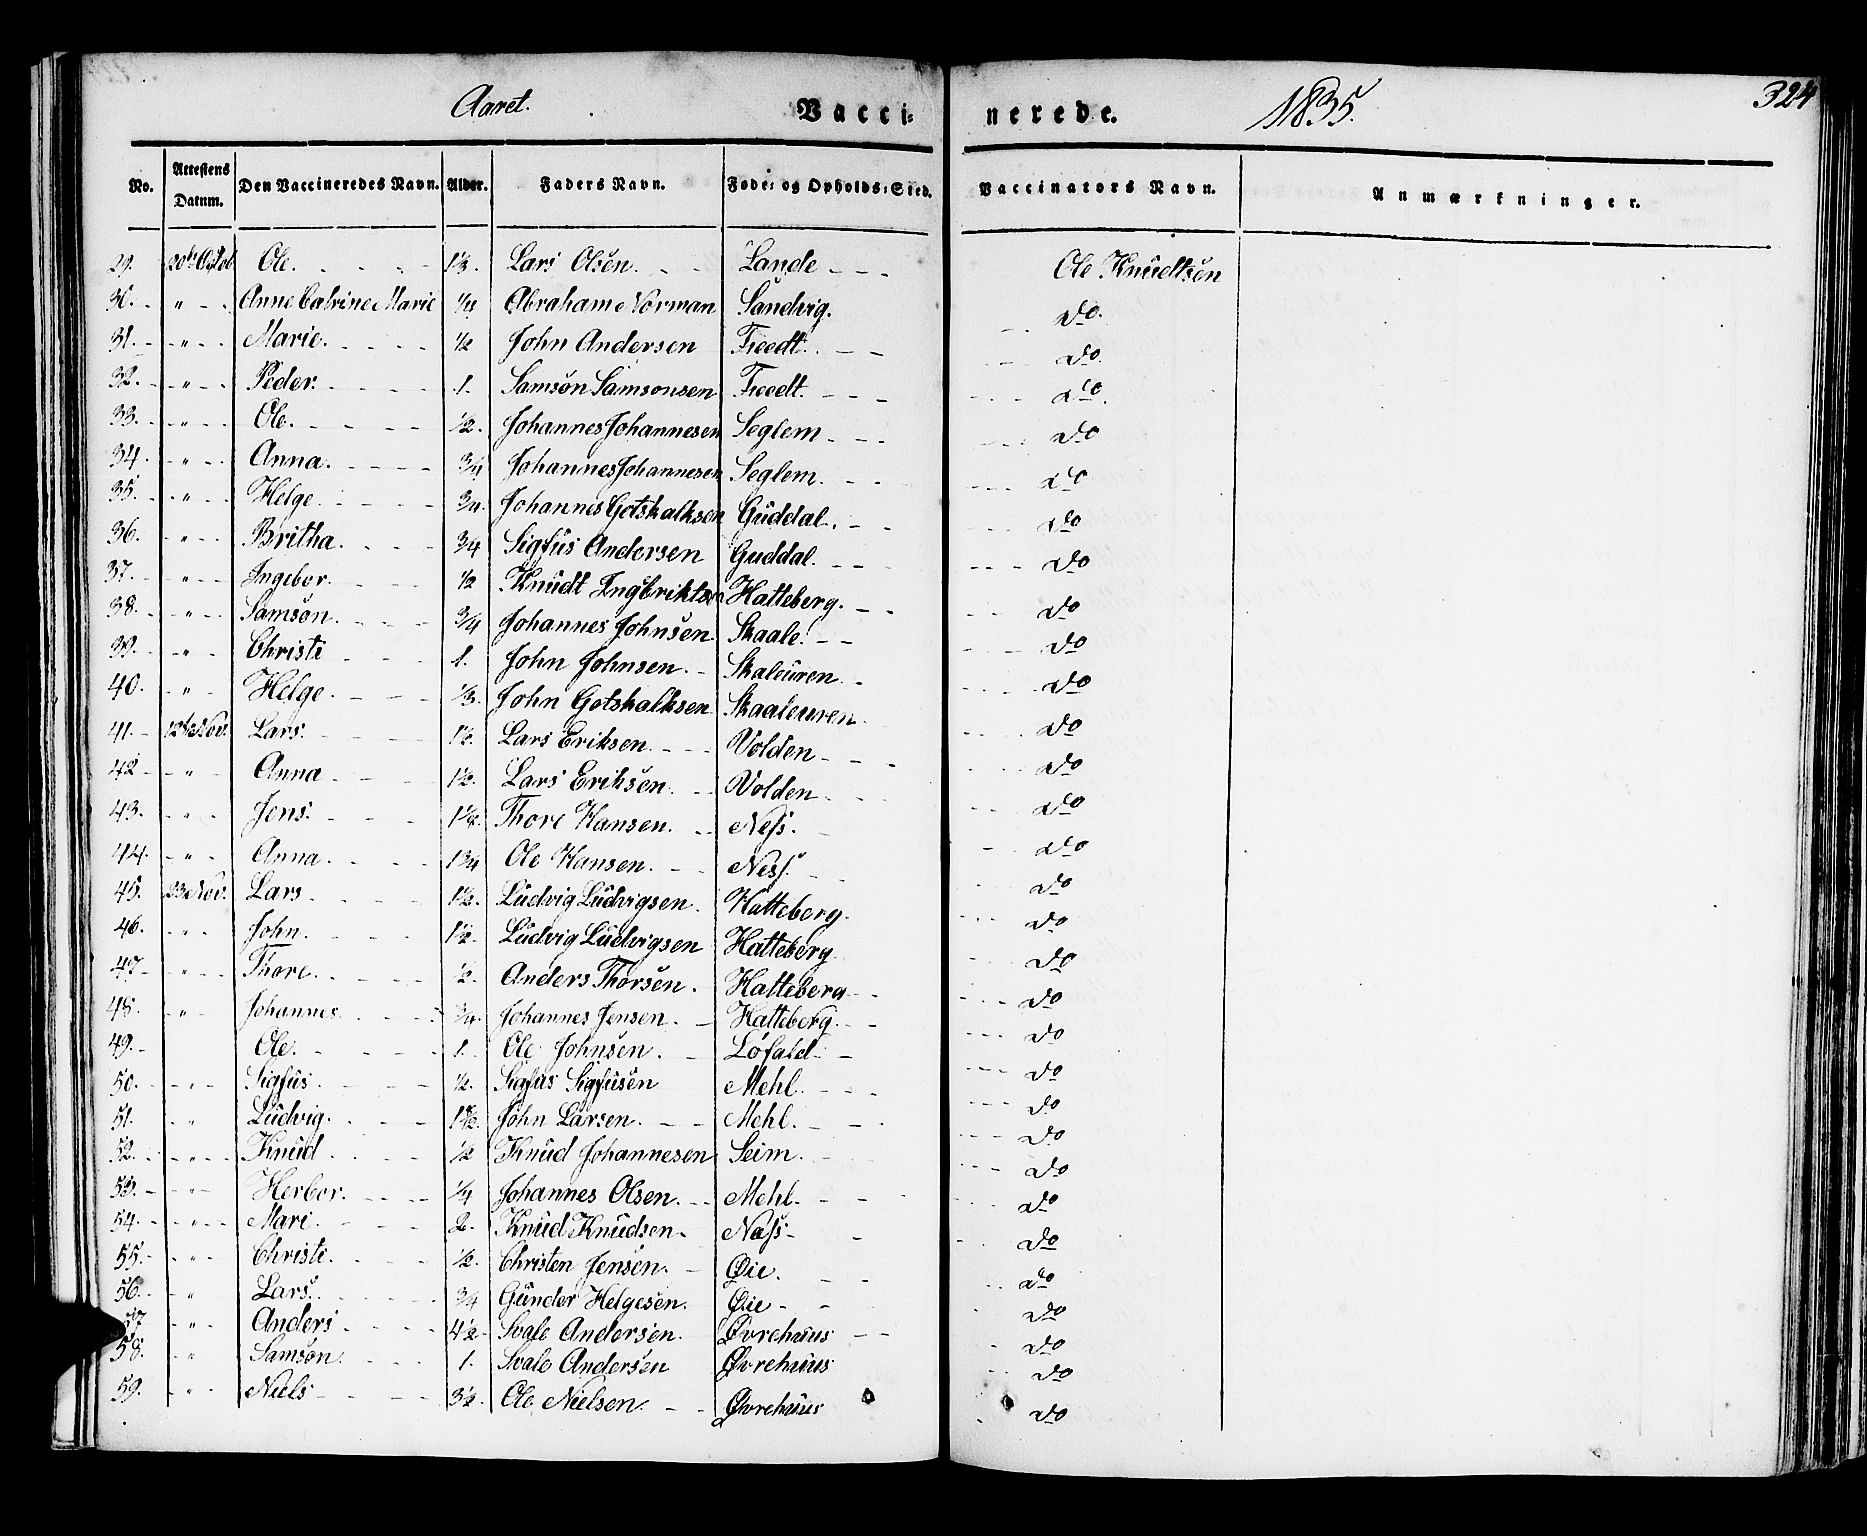 Aaret. Vacci= nerede. 1835. 324
No. Attestens Datum. Den Vaccineredes Navn. Alder. Faders Navn. Føde= og Opholds=Sted. Vaccinators Navn. Anmærkninger.
29. 20de Octob Ole. Lars Olsen. Lande Ole Knudtsen
30. " Anne Catrine Marie 1/4 Abraham Norman Sandvig. do.
31. " Marie. 1/2 John Andersen Tveedt. do.
32. " Peder. 1. Samson Samsonsen Tveedt. do.
33. " Ole. 1/2. Johannes Johannesen Seglem. do
34. " Anna. 3/4 Johannes Johannesen Seglem. do
35. " Helge. 3/4. Johannes Gotskalksen Guddal. do
36. " Britha. 3/4 Sigfus Andersen Guddal. do
37. " Ingebor. 1/2 Knudt Ingbriktsen Hatteberg. do
38. " Samson. 3/4 Johannes Johnsen. Skaale. do
39. " Christi 1. John Johnsen. Skaleuren. do
40. " Helge. 1/3. John Gotskalksen Skaaleuren. do
41. 12te Nov. Lars. Lars Eriksen. Volden do
42 " Anna Lars Eriksen. Volden do
43. " Jens. Thore Hansen. Ness. do
44. " Anna 1 3/4 Ole Hansen. Ness. do
45. 23 Nov. Lars 1 1/2. Ludvig Ludvigsen. Hatteberg. do
46. " John. 1 1/2. Ludvig Ludvigsen Hatteberg do
47 " Thore. 1/2. Anders Thorsen. Hatteberg do
48. " Johannes 3/4. Johannes Jensen. Hatteberg. do
49. Ole. 1. Ole Johnsen. Løfald do
50. " Sigfus 1/2. Sigfus Sigfusen Mehl. do
51. " Ludvig. John Larsen. Mehl. do
52. " Knud 1/2 Knud Johannesen Seim. do
53. " Herbor. 1/4 Johannes Olsen. Mehl. do
54. " Mari. 2. Knud Knudsen Næss do
55. " Christi. 1/2. Christen Jensen. Øie. do
56. " Lars. 3/4 Gunder Helgesen. Øie do
57 " Anders 4 1/2 Svale Andersen. Øvrehuus do
58. " Samson. 1. Svale Andersen Øvrehuus do
59. " Niels 3 1/2. Ole Nielsen. Øvrehuus do